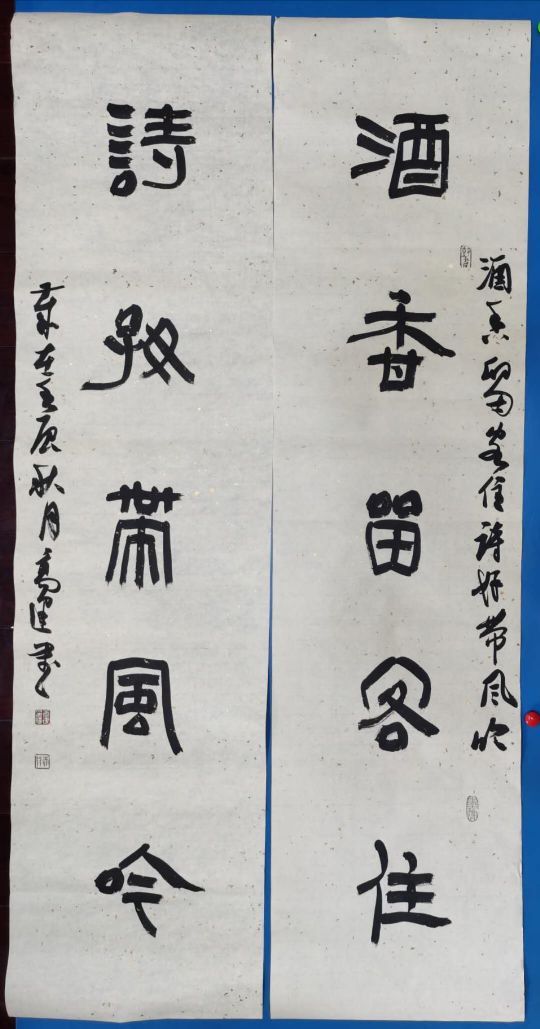 酒香留客住詩好帶风吟
酒香留客住
詩好帶風吟
歲在壬辰秋月高